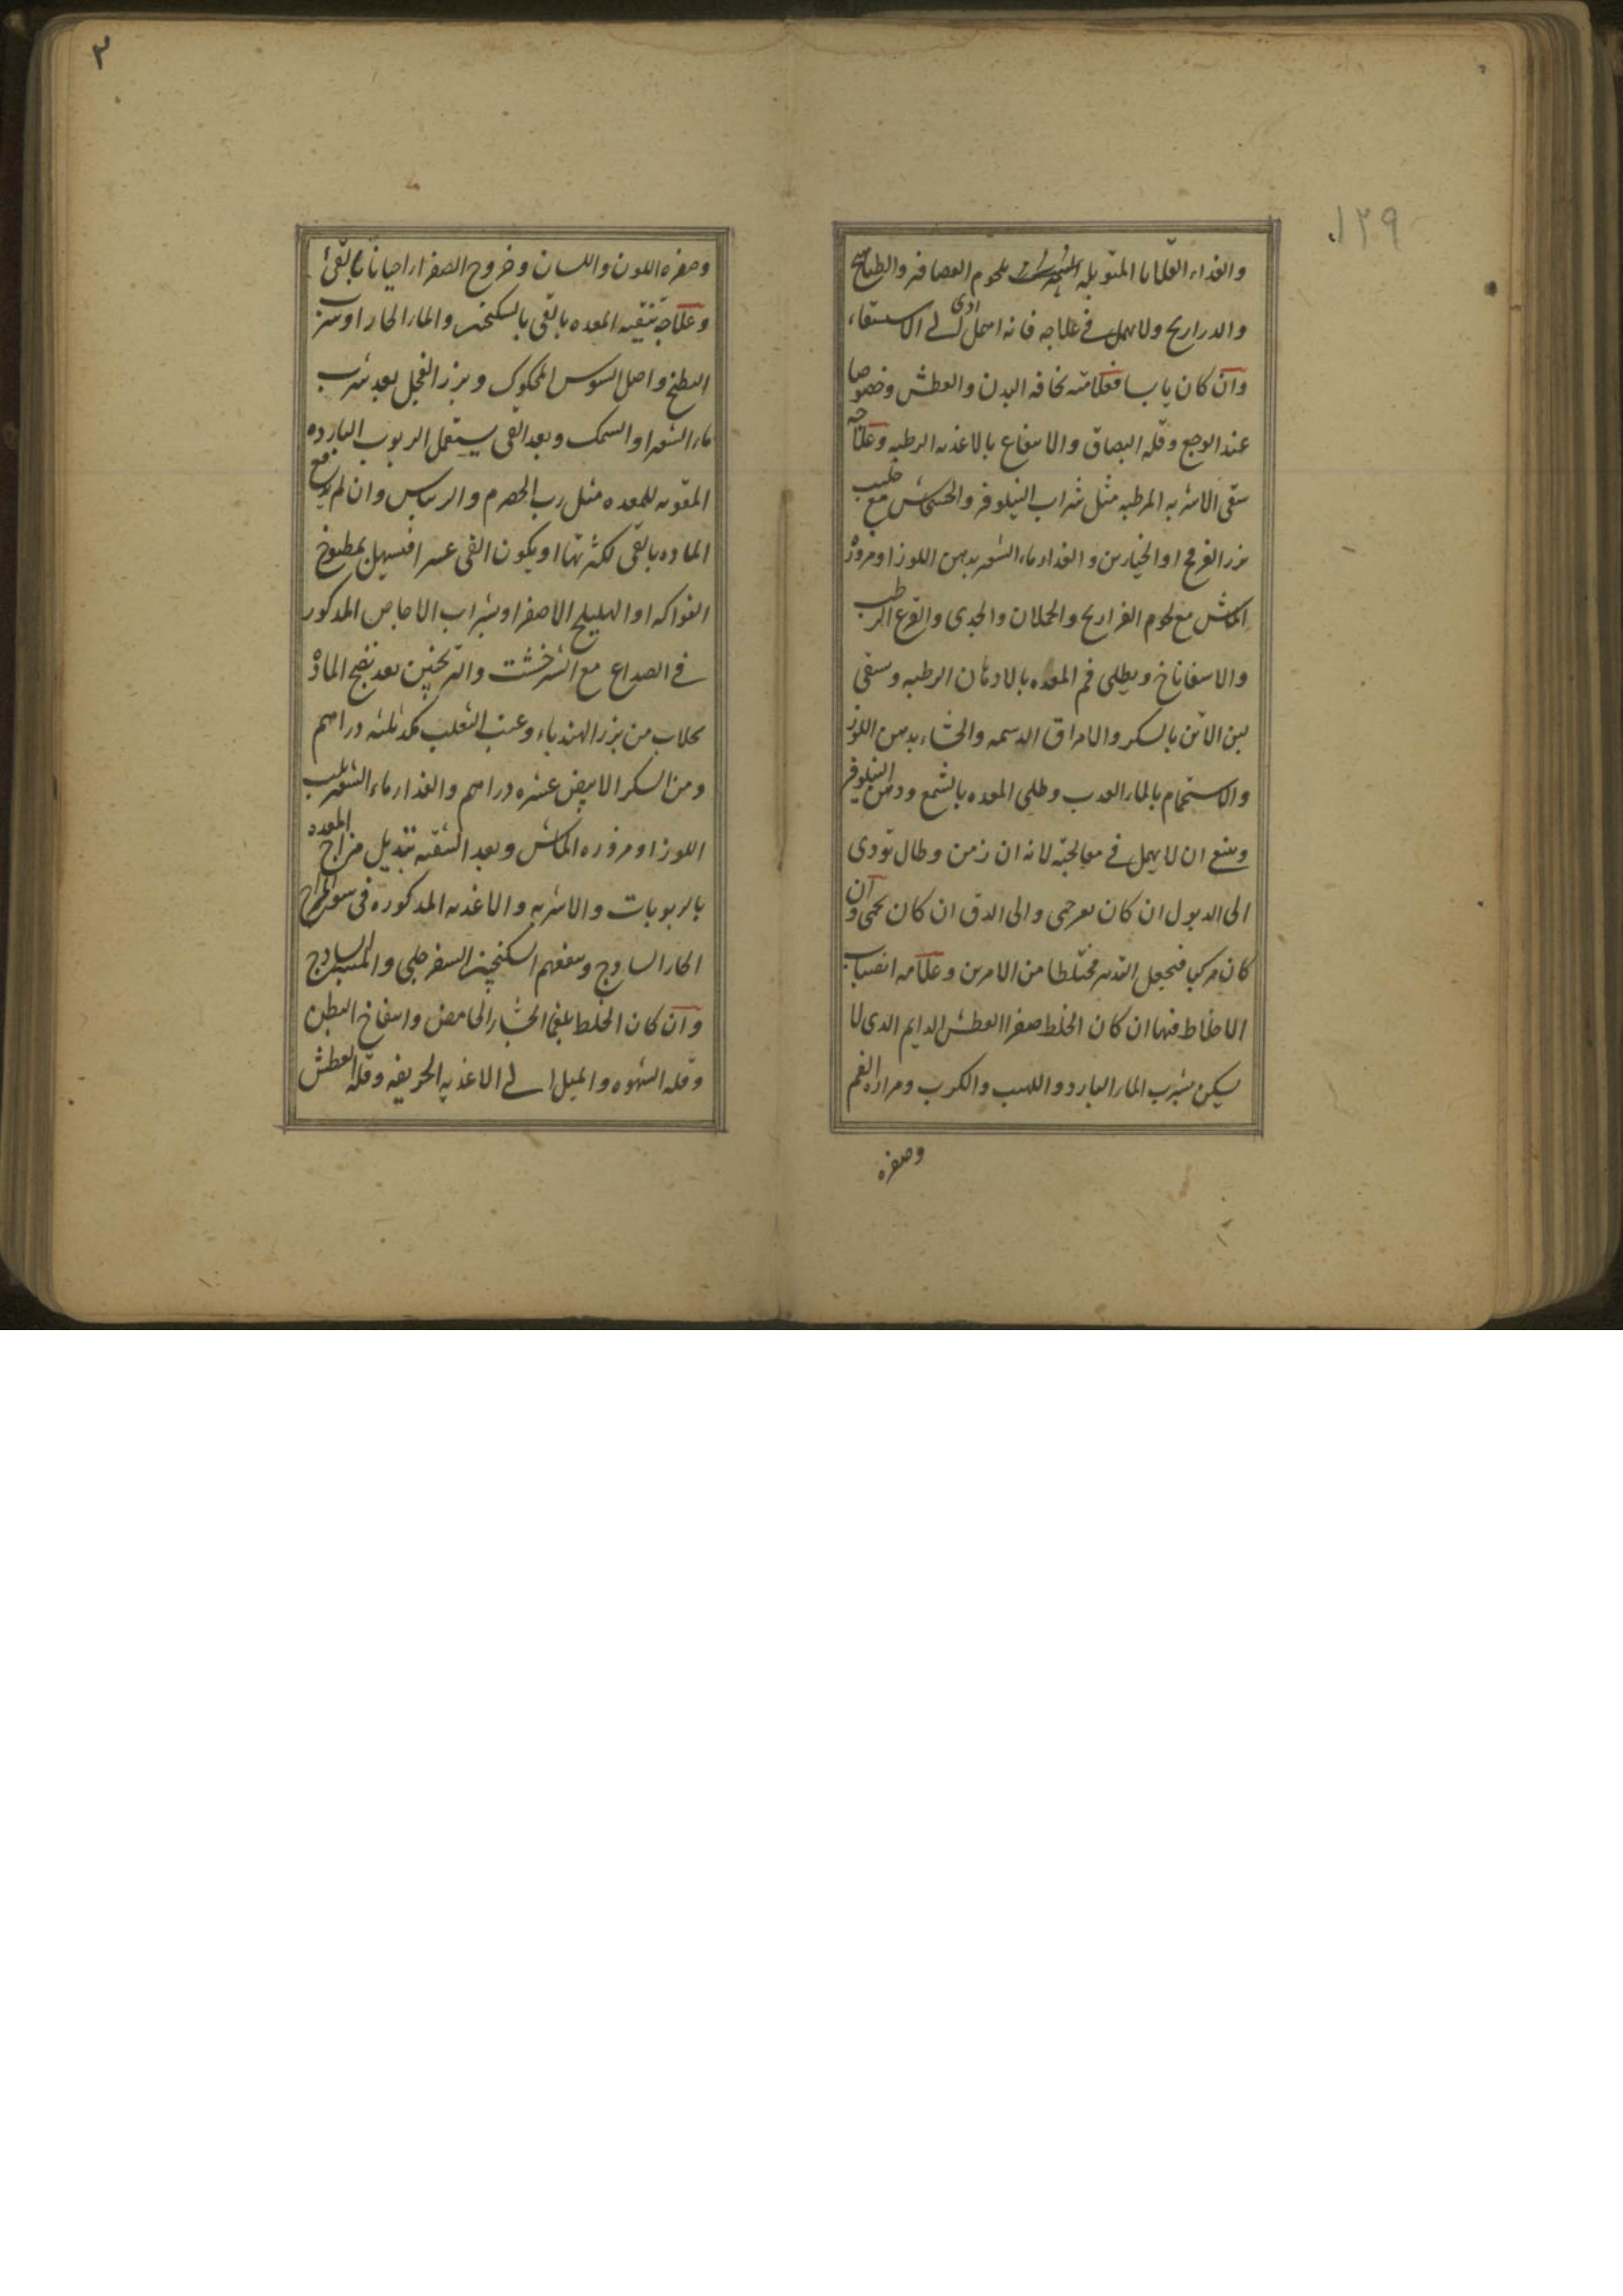 ١٢٩
والغداء القلايا المتوبله بلحوم العصافر والطياهج
والدراريح ولا يهمل فى علاجه فانه ان اهمل ادى الى الاستقاء
وان كان يابسا فعلامته نحافه البدن والعطش وخصوصا
عند الوجع وقله البصاق والانتفاع بالاغديه الرطبه وعلاجه
سقى الاشربه المرطبه مثل شراب النيلوفر والخشخاش مع حليب
بزر الفرفح او الخيارين والغداء ماء الشعير بدهن اللوز او مزوره
الماش مع لحوم الفراريح والحملان والجدى والقرع الرطب
والاسفاناخ ويطلى فم المعده بالادهان الرطبه وسقى
لبن الاتن بالسكر والامراق الدسمه والحساء بدهن اللوز
والاستحمام بالماء العدب وطلى المعده بالشمع ودهن النيلوفر
وينبغى ان لا يهمل فى معالجته لانه ان زمن وطال تودى
الى الدبول ان كان بغير حمى والى الدق ان كان بحمى وان
كان مركبا فيجعل التدبير مختلطا من الامرين وعلامه انصباب
الاخلاط فيها ان كان الخلط صفرا العطش الدايم الدى لا
يسكن بشرب الماء البارد واللهيب والكرب ومراره الفم
وصفره
٣
وصفره اللون واللسان وخروج الصفراء احيانا بالقئ
وعلاجه تنقيه المعده بالقى بالسكنجبين والماء الحار او بزر
البطيخ واصل السوس المحكوك وبزر الفجل بعد شرب
ماء الشعير او السمك وبعد القى يستعمل الربوب البارده
المقويه للمعده مثل رب الحصرم والريباس وان لم يندفع
الماده بالقى لكثرتها او يكون القى عسرا فيسهل بمطبوخ
الفواكه او الهليلج الاصفر او بشراب الاجاص المدكور
فى الصداع مع الشرخشت والترنجبين بعد نضج الماده
بحلاب من بزر الهندباء وعنب الثعلب كمد ثلثه دراهم
ومن السكر الابيض عشره دراهم والغداء ماء الشعير بلب
اللوز او مزوره الماش وبعد التنقيه تبديل مزاج المعده
بالربوبات والاشربه والاغديه المدكوره فى سوء المزاج
الحار السادج وينفعهم السكنجبين السفرجلى
وان كان الخلط بلغما الجشاء الحامض وانتفاخ البطن
وقله الشهوه والميل الى الاغديه الحريفه وقله العطش